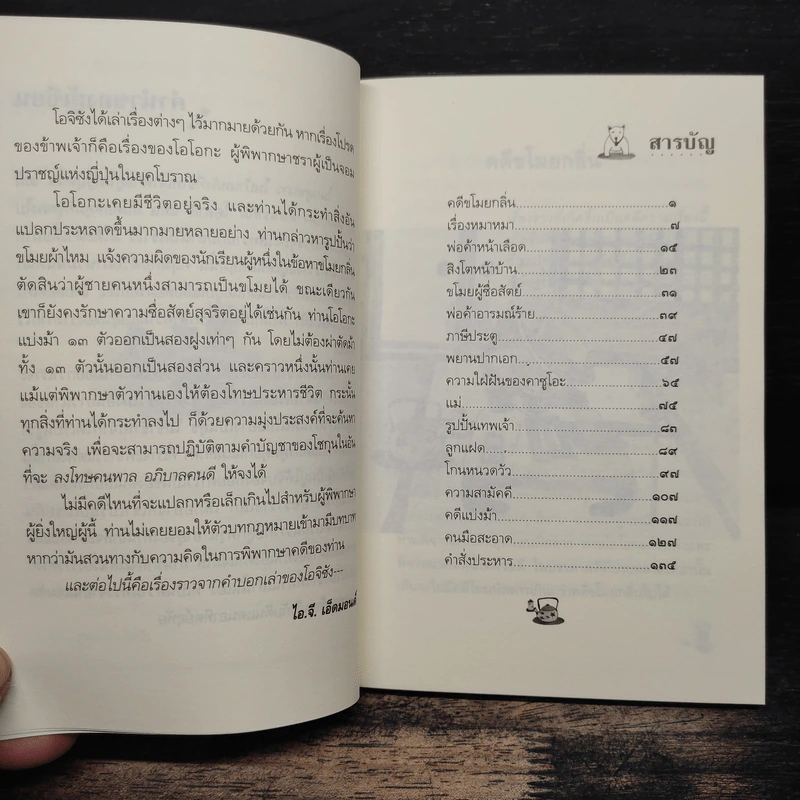 โอจิซังได้เล่าเรื่องต่างๆ ไว้มากมายด้วยกัน หากเรื่องโปรด
ของข้าพเจ้าก็คือเรื่องของโอโอกะ ผู้พิพากษาชราผู้เป็นจอม
ปราชญ์แห่งญี่ปุ่นในยุคโบราณ
โอโอกะเคยมีชีวิตอยู่จริง และท่านได้กระทำสิ่งอัน
แปลกประหลาดขึ้นมากมายหลายอย่าง ท่านกล่าวหารูปปั้นว่า
ขโมยผ้าไหม แจ้งความผิดของนักเรียนผู้หนึ่งในข้อหาขโมยกลิ่น
ตัดสินว่าผู้ชายคนหนึ่งสามารถเป็นขโมยได้ ขณะเดียวกัน
เขาก็ยังคงรักษาความซื่อสัตย์สุจริตอยู่ได้เช่นกัน ท่านโอโอกะ
แบ่งม้า ๑๓ ตัวออกเป็นสองฝูงเท่าๆ กัน โดยไม่ต้องผ่าตัดม้า
ทั้ง ๑๓ ตัวนั้นออกเป็นสองส่วน และคราวหนึ่งนั้นท่านเคย
แม้แต่พิพากษาตัวท่านเองให้ต้องโทษประหารชีวิต กระนั้น
ทุกสิ่งที่ท่านได้กระทำลงไป ก็ด้วยความมุ่งประสงค์ที่จะค้นหา
ความจริง เพื่อจะสามารถปฏิบัติตามคำบัญชาของโชกุนในอัน
ที่จะ ลงโทษคนพาล อภิบาลคนดี ให้จงได้
ไม่มีคดีไหนที่จะแปลกหรือเล็กเกินไปสำหรับผู้พิพากษา
ผู้ยิ่งใหญ่ผู้นี้ ท่านไม่เคยยอมให้ตัวบทกฎหมายเข้ามามีบทบาท
หากว่ามันสวนทางกับความคิดในการพิพากษาคดีของท่าน
และต่อไปนี้คือเรื่องราวจากคำบอกเล่าของโอจิซัง---
ไอ.จี. เอ็ดมอนด์
สารบัญ
คดีขโมยกลิ่น ๑
เรื่องหมาหมา ๗
พ่อค้าหน้าเลือด ๑๕
สิงโตหน้าบ้าน ๒๓
ขโมยผู้ซื่อสัตย์ ๓๑
พ่อค้าอารมณ์ร้าย ๓๙
ภาษีประตู ๔๗
พยานปากเอก ๕๗
ความใฝ่ฝันของคาซูโอะ ๖๕
แม่ ๗๕
รูปปั้นเทพเจ้า ๘๓
ลูกแฝด ๘๙
โกนหนวดวัว ๙๗
ความสามัคคี ๑๐๗
คดีแบ่งม้า ๑๑๗
คนมือสะอาด ๑๒๗
คำสั่งประหาร ๑๓๕